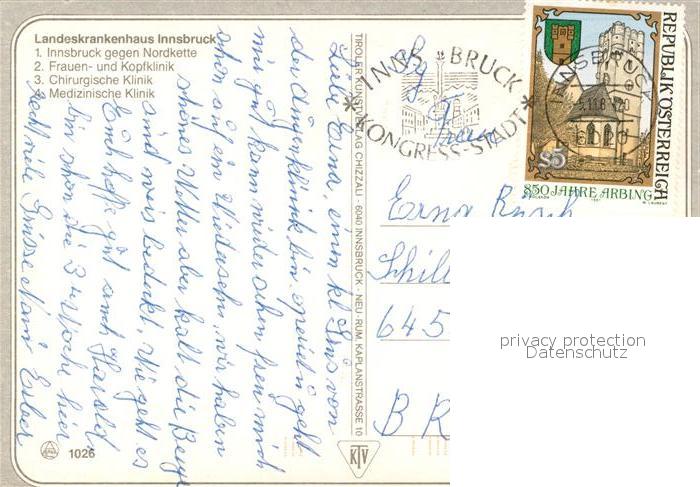 Landeskrankenhaus Innsbruck
1. Innsbruck gegen Nordkette
2. Frauen- und Kopfklinik
3. Chirurgische Klinik
4. Medizinische Klinik
Liebe Erna, einen kl. Gruss von
der Augenklinik bin operiert geht
mir gut kann wieder sehen freu mich
schon auf ein Wiedersehn, wir haben
schönes Wetter aber kalt die Berge
sind weis bedeckt, Wie geht es
Euch hoffe gut auch Harald
bin schon die 3 Woche hier
recht viele Grüsse
TIROLER KUNSTVERLAG CHIZZALI - 6040 INNSBRUCK - NEU-RUM, KAPLANSTRASSE 10
KTV
1026
INNSBRUCK
KONGRESS-STADT
INNSBRUCK
6020
REPUBLIK ÖSTERREICH
S5
850 JAHRE ARBING
Frau
Erna
Schil
645
B R
privacy protection
Datenschutz